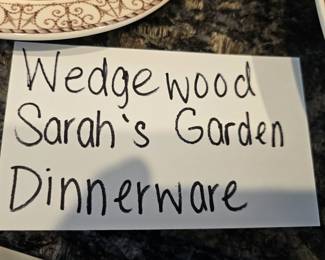 Wedgewood
Sarah's Garden
Dinnerware